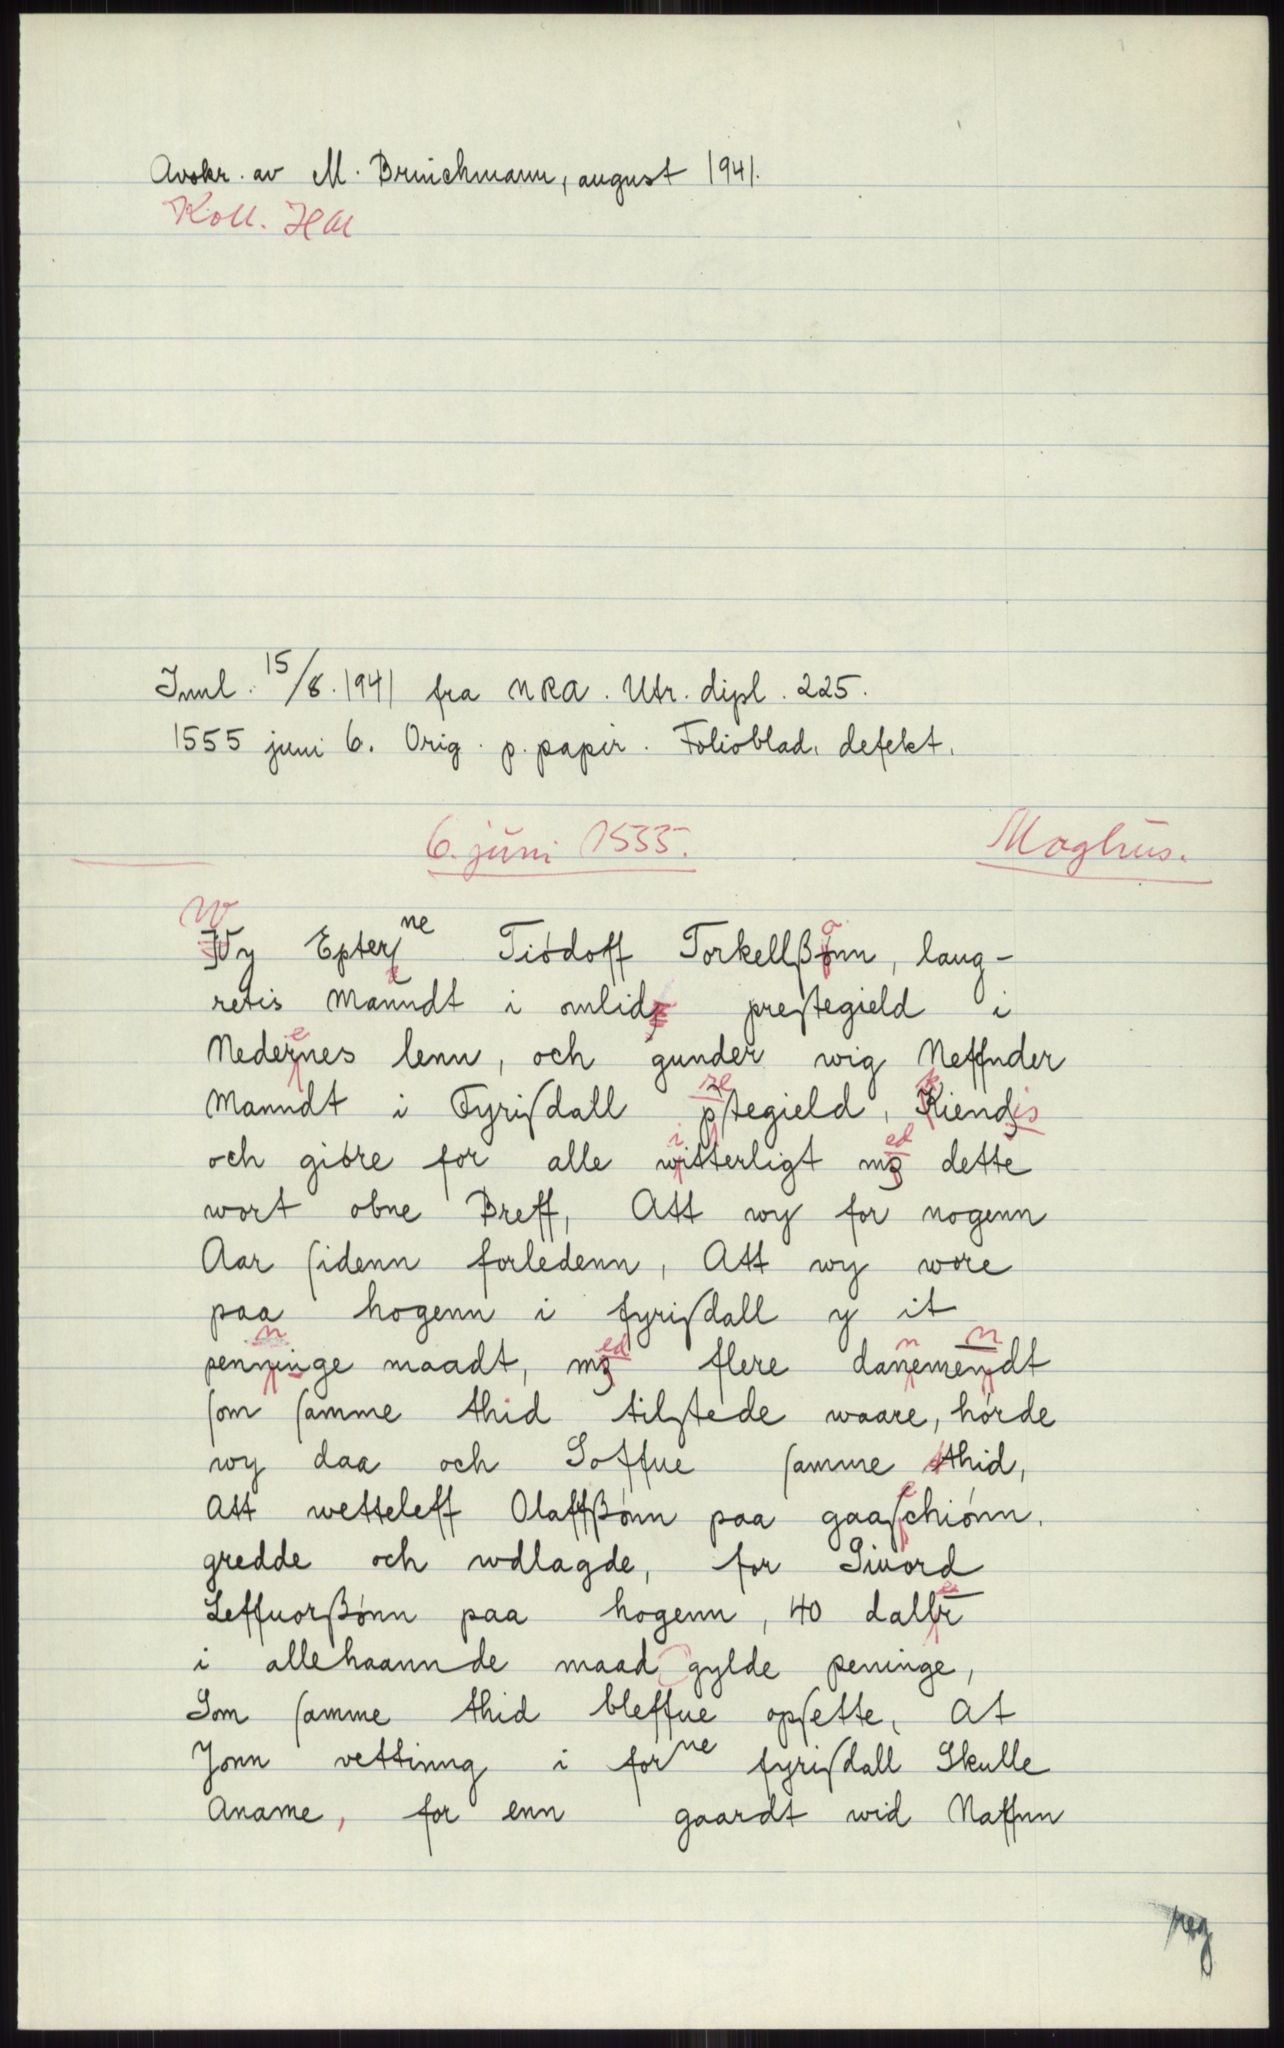 Avskr. av M. Brinchmann, august 1941.
Koll. HM
Innl. 15/8. 1941 fra NRA. Utr. dipl. 225.
1555 juni 6. Orig. p. papir. Folioblad, defekt.
6. juni 1555. Moghus.
Wy Epterne Tiódoff Torkellßonn, laug-
retis Manndt i omlid preſtegield i
Nedernes lenn, och gunder wig Neffnder
Manndt i Fyriſdall preſtegield, Kiendis
och gióre for alle witterligt med dette
wort obne Breff, Att wy for nogenn
Aar ſidenn forledenn, Att wy wore
paa hogenn i fyriſdall y it
penninge maadt, med flere danemenndt
ſom ſamme thid tilſtede waare, hórde
wy daa och Soffue ſamme thid,
Att wetteleff Olaffßónn paa gaaſechiónn.
gredde och wdlagde, for Siuord
Leffuorßónn paa hogenn, 40 daller
i allehaannde maad gylde peninge,
Som ſamme thid bleffue opſette, At
Jonn vettinng i forne fyriſdall Skulle
Aname, for enn gaardt wid Naffnn
reg